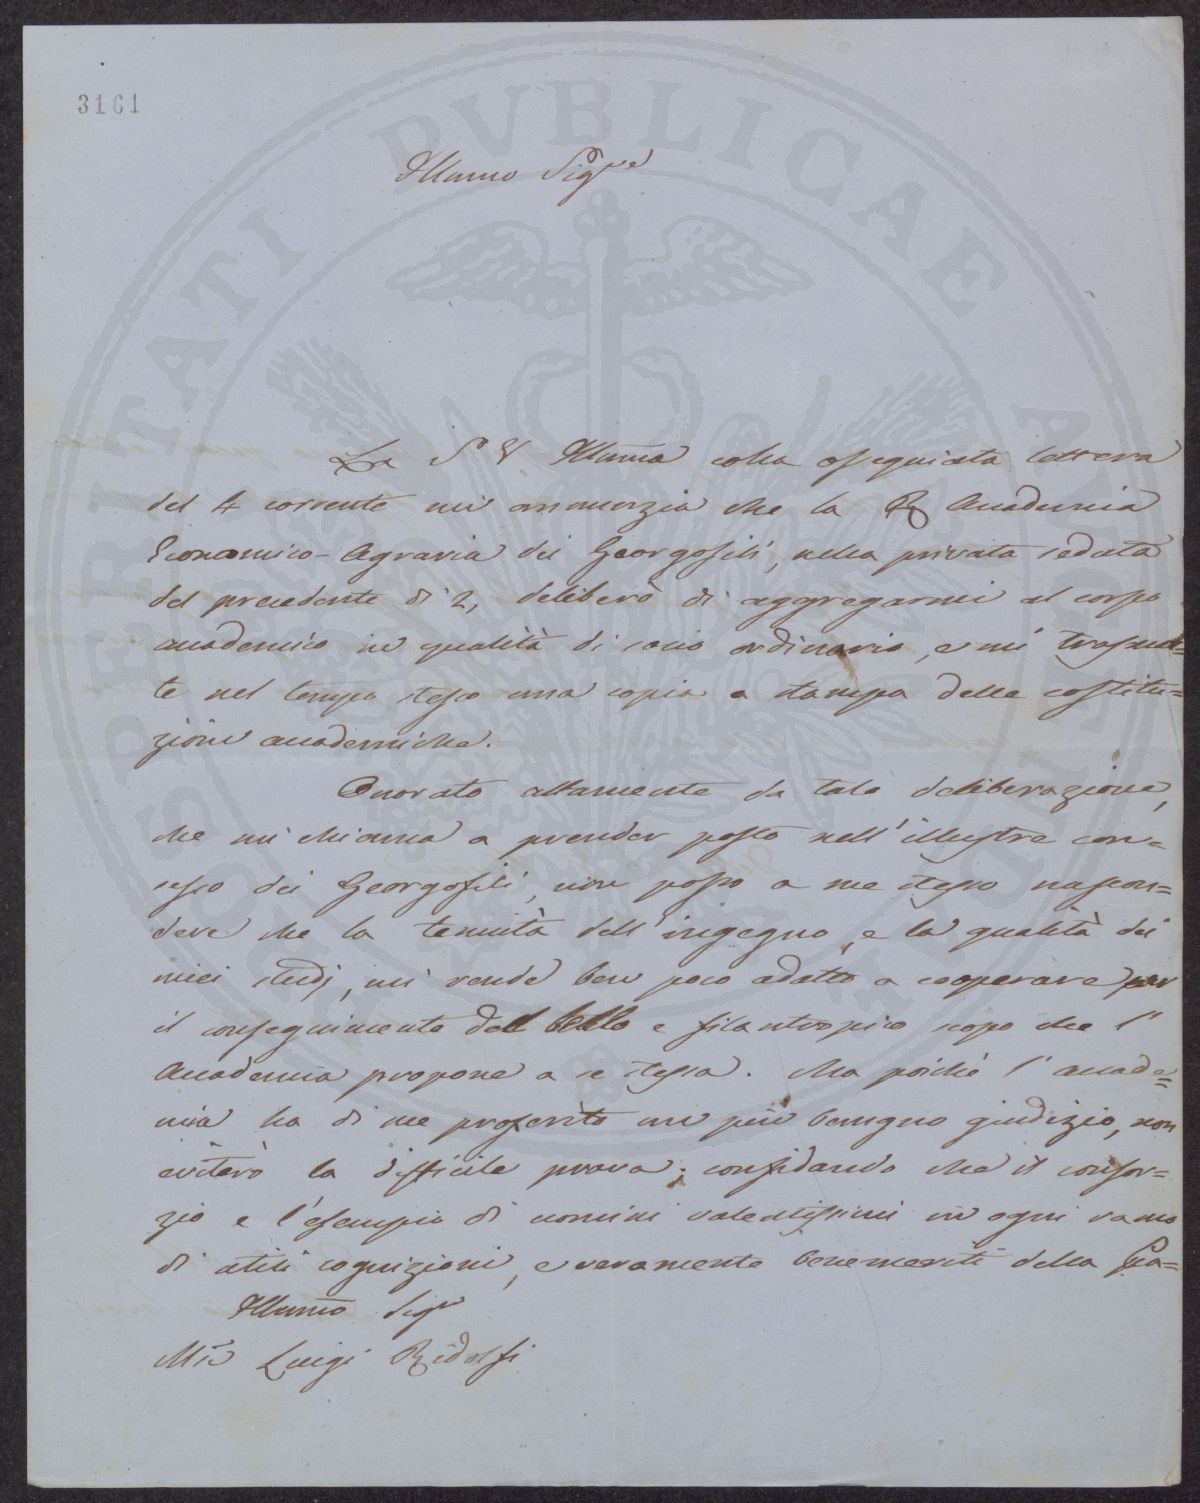 3161
Illmo Sigre
La S V Illma colla ossequiata lettera
del 4 corrente mi annunzia che la R Accademia
Economico-Agraria dei Georgofili, nella privata seduta
del precedente dì 2, deliberò di aggregarmi al corpo
accademico in qualità di socio ordinario, e mi trasmet=
te nel tempo stesso una copia a stampa delle costitu=
zioni accademiche.
Onorato altamente da tale deliberazione,
che mi chiama a prender posto nell' illustre con=
sesso dei Georgofili, non posso a me stesso nascon=
dere che la tenuità dell' ingegno, e la qualità dei
miei studj, mi rende ben poco adatto a cooperare per
il conseguimento del bello e filantropico scopo che l'
Accademia propone a se stessa. Ma poichè l' accade=
mia ha di me proferito un più benigno giudizio, non
eviterò la difficile prova; confidando che il consor=
zio e l'esempio di uomini valentissimi in ogni ramo
di utili cognizioni, e veramente benemeriti della Pa=
Illmo Sigre
Luigi Ridolfi
PROSPERITATI PVBLICAE AVGENDAE